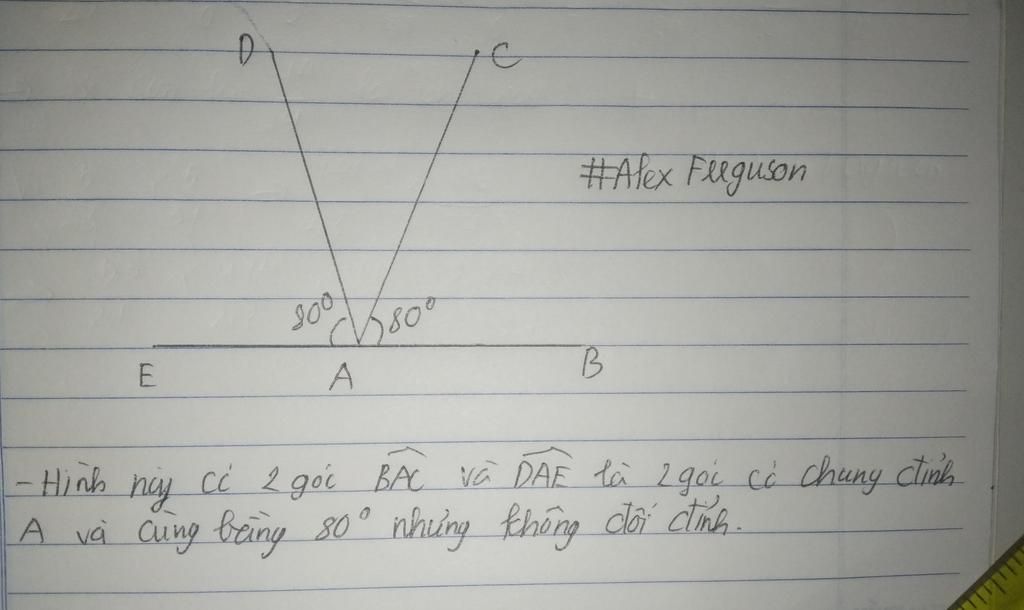 D C
#Alex Ferguson
80° 80°
E A B
- Hình này có 2 góc BAC và DAE là 2 góc có chung đỉnh
A và cùng bằng 80° nhưng không đối đỉnh.